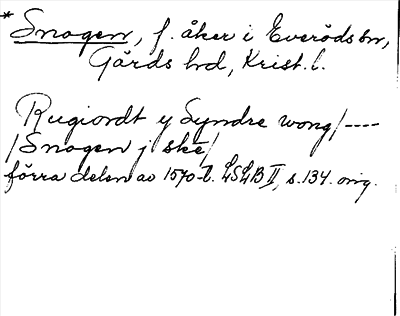 * Snogen, f. åker i Everöds sn,
Gärds hd, Krist. l.
Rugiordt y Syndre wong /----
/ Snogen j ske /
förra delen av 1570-t. LSLB II, s. 134. orig.